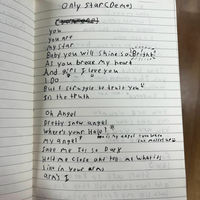 Only Star (Demo)
You
You are
My star
Baby you will shine so Bright!
As you break my heart
And girl I love you
I Do
But I struggle to trust you
Isn the truth
Oh Angel
Pretty snow angel
Where's your Halo?
My angel
Save me Its so Dark
Hold me Close and tell me what its
Like in your arms
arms